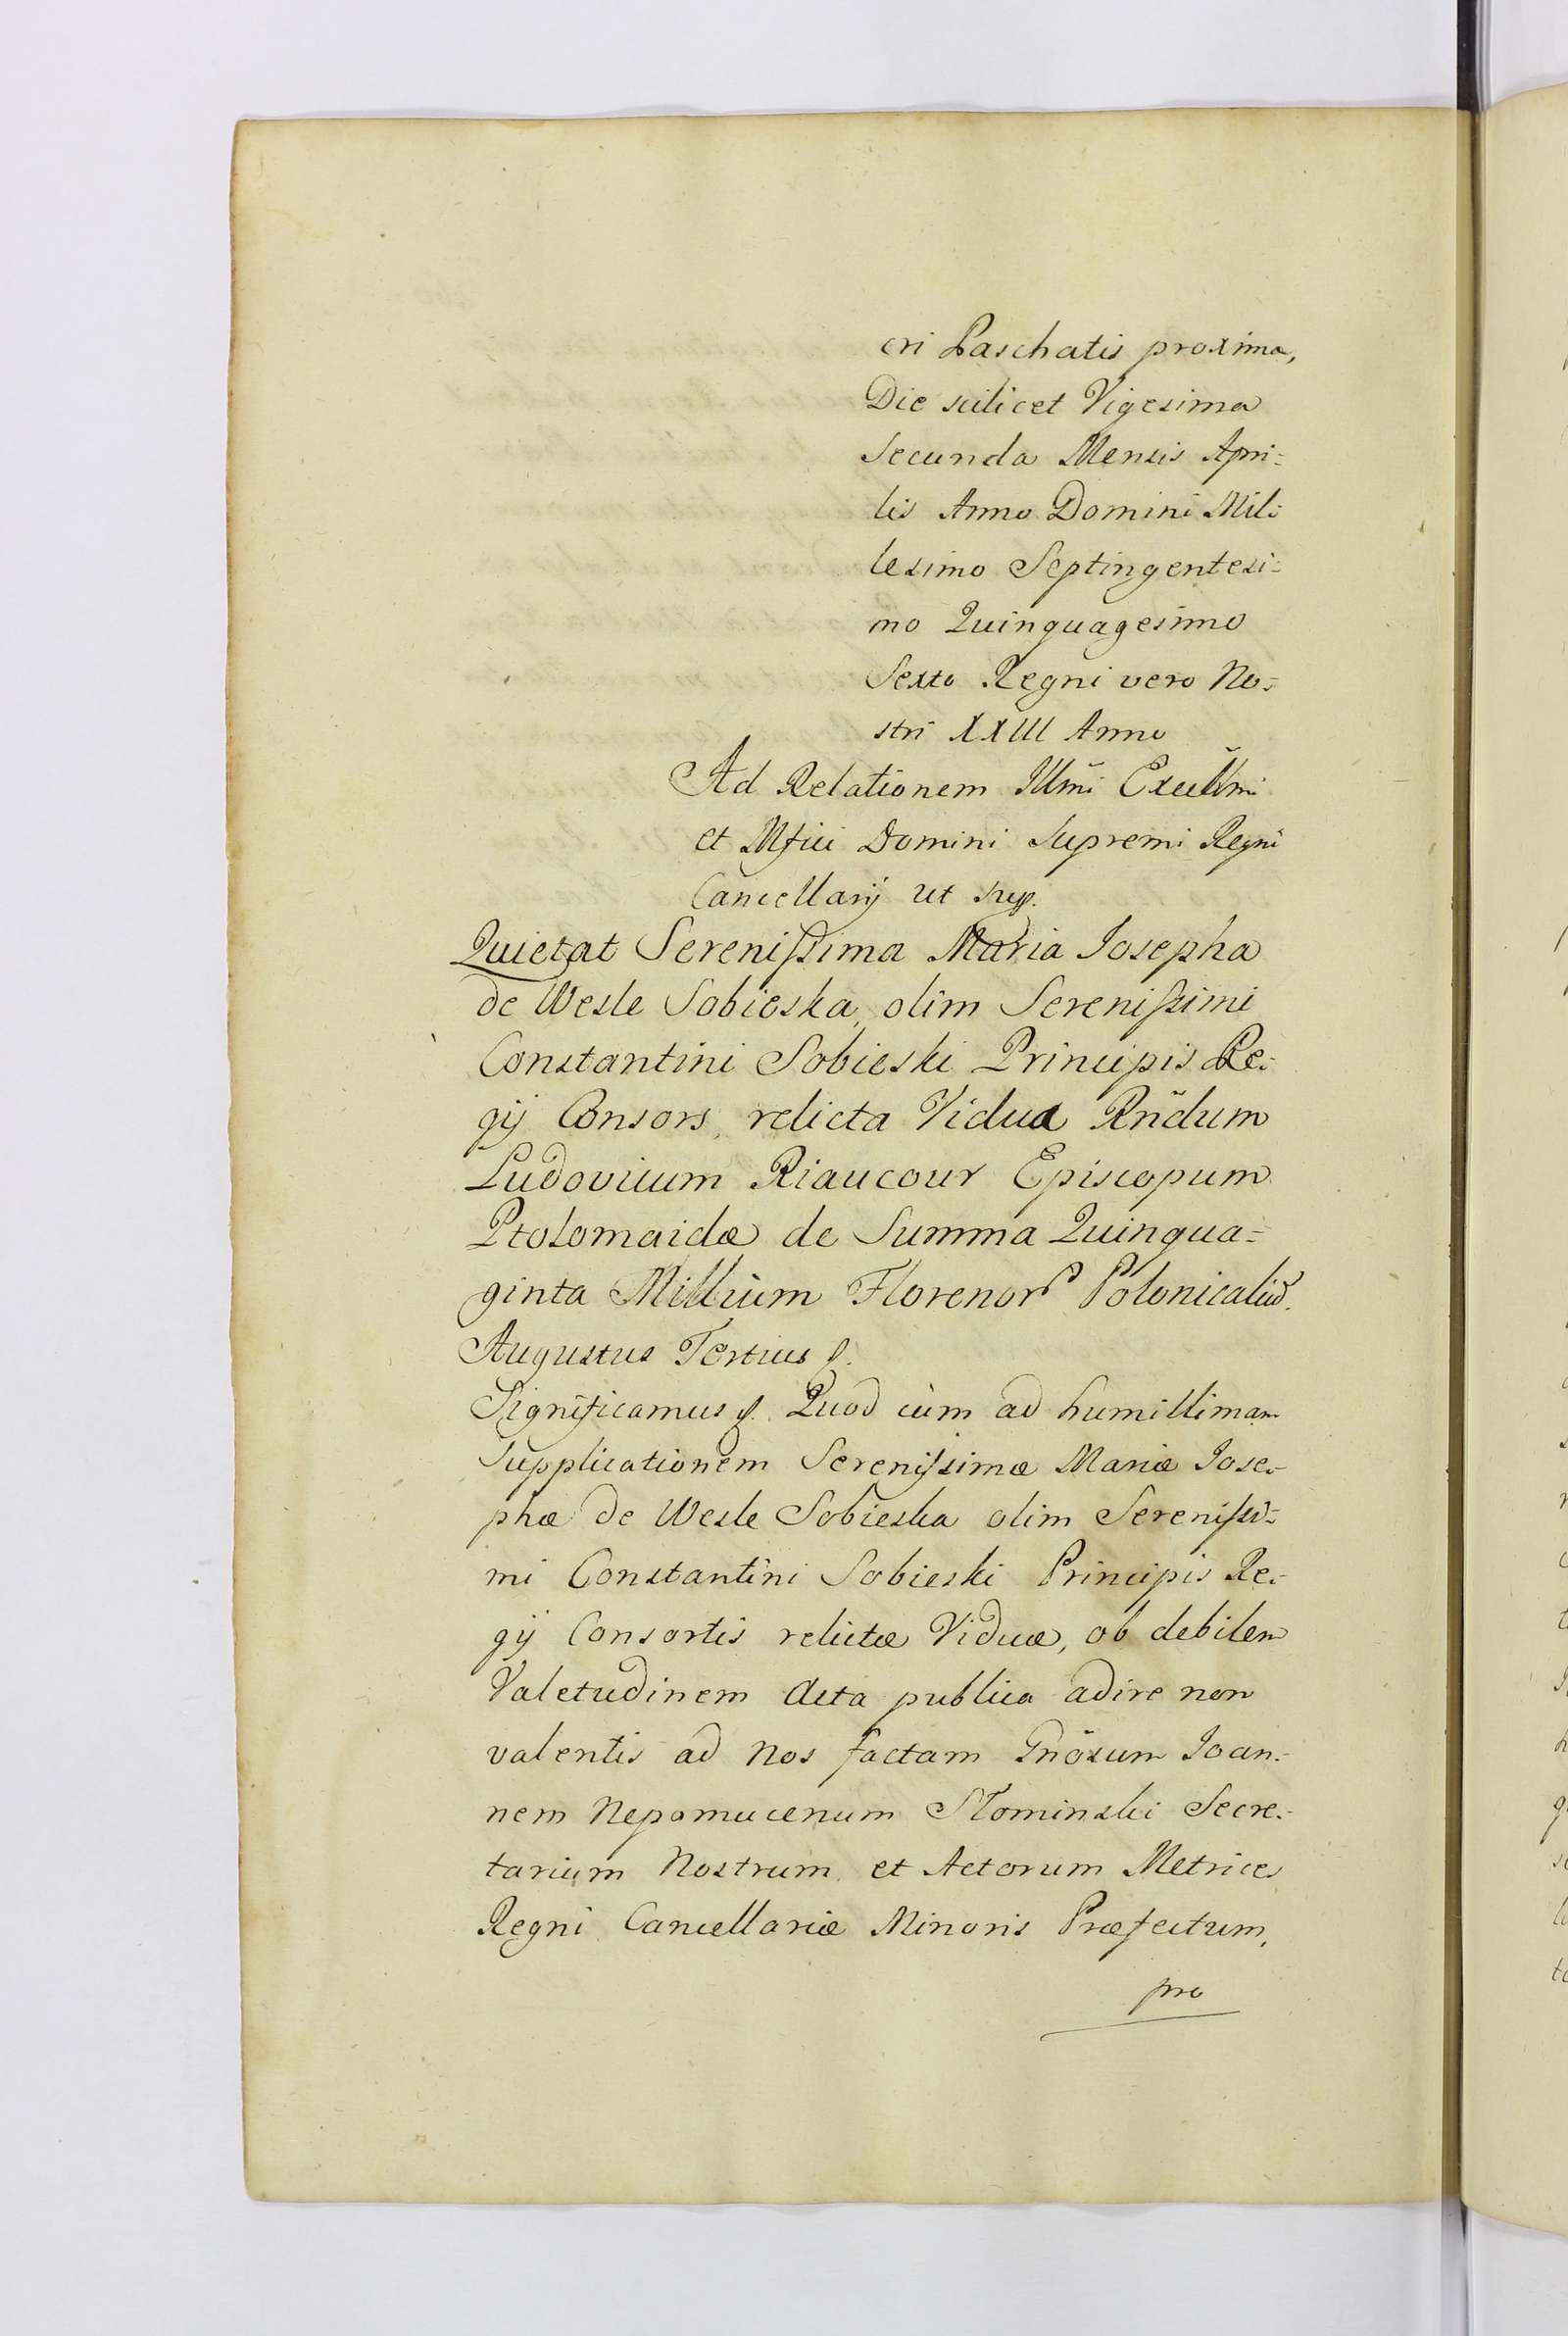 cri Paschatis proxima,
Die scilicet Vigesima
Secunda Mensis Apri=
lis Anno Domini Mil=
lesimo Septingentesi=
mo Quinquagesimo
Sexto Regni vero No=
stri XXIII Anno
Ad Relationem Illm̃i Excellm̃i
et Mfici Domini Supremi Regni
Cancellarij ut sup.
Quietat Serenissima Maria Josepha
de Wesle Sobieska, olim Serenissimi
Constantini Sobieski Principis Re=
gij Consors, relicta Vidua Rñdum
Ludovicum Riaucour Episcopum
Ptolomaidæ de Summa Quinqua=
ginta Millium Florenor Polonicaliũ.
Augustus Tertius
Significamus Quod cùm ad humillimam
Supplicationem Serenissimæ Mariæ Jose=
phæ de Wesle Sobieska olim Serenissi=
mi Constantini Sobieski Principis Re=
gij Consortis relictæ Viduæ, ob debilem
Valetudinem Acta publica adire non
valentis ad Nos factam Gñosum Joan=
nem Nepomucenum Słominski Secre=
tarium Nostrum et Actorum Metrices
Regni Cancellariæ Minoris Præfectum,
pro